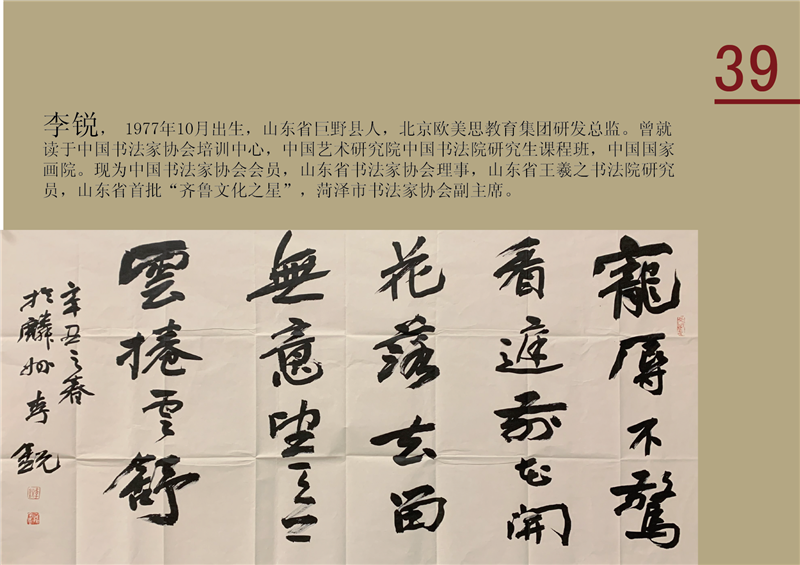 39
李锐， 1977年10月出生，山东省巨野县人，北京欧美思教育集团研发总监。曾就
读于中国书法家协会培训中心，中国艺术研究院中国书法院研究生课程班，中国国家
画院。现为中国书法家协会会员，山东省书法家协会理事，山东省王羲之书法院研究
员，山东省首批“齐鲁文化之星”，菏泽市书法家协会副主席。
寵辱不驚
看庭前花開
花落去留
無意望天上
雲捲雲舒
辛丑之春
於麟州李銳